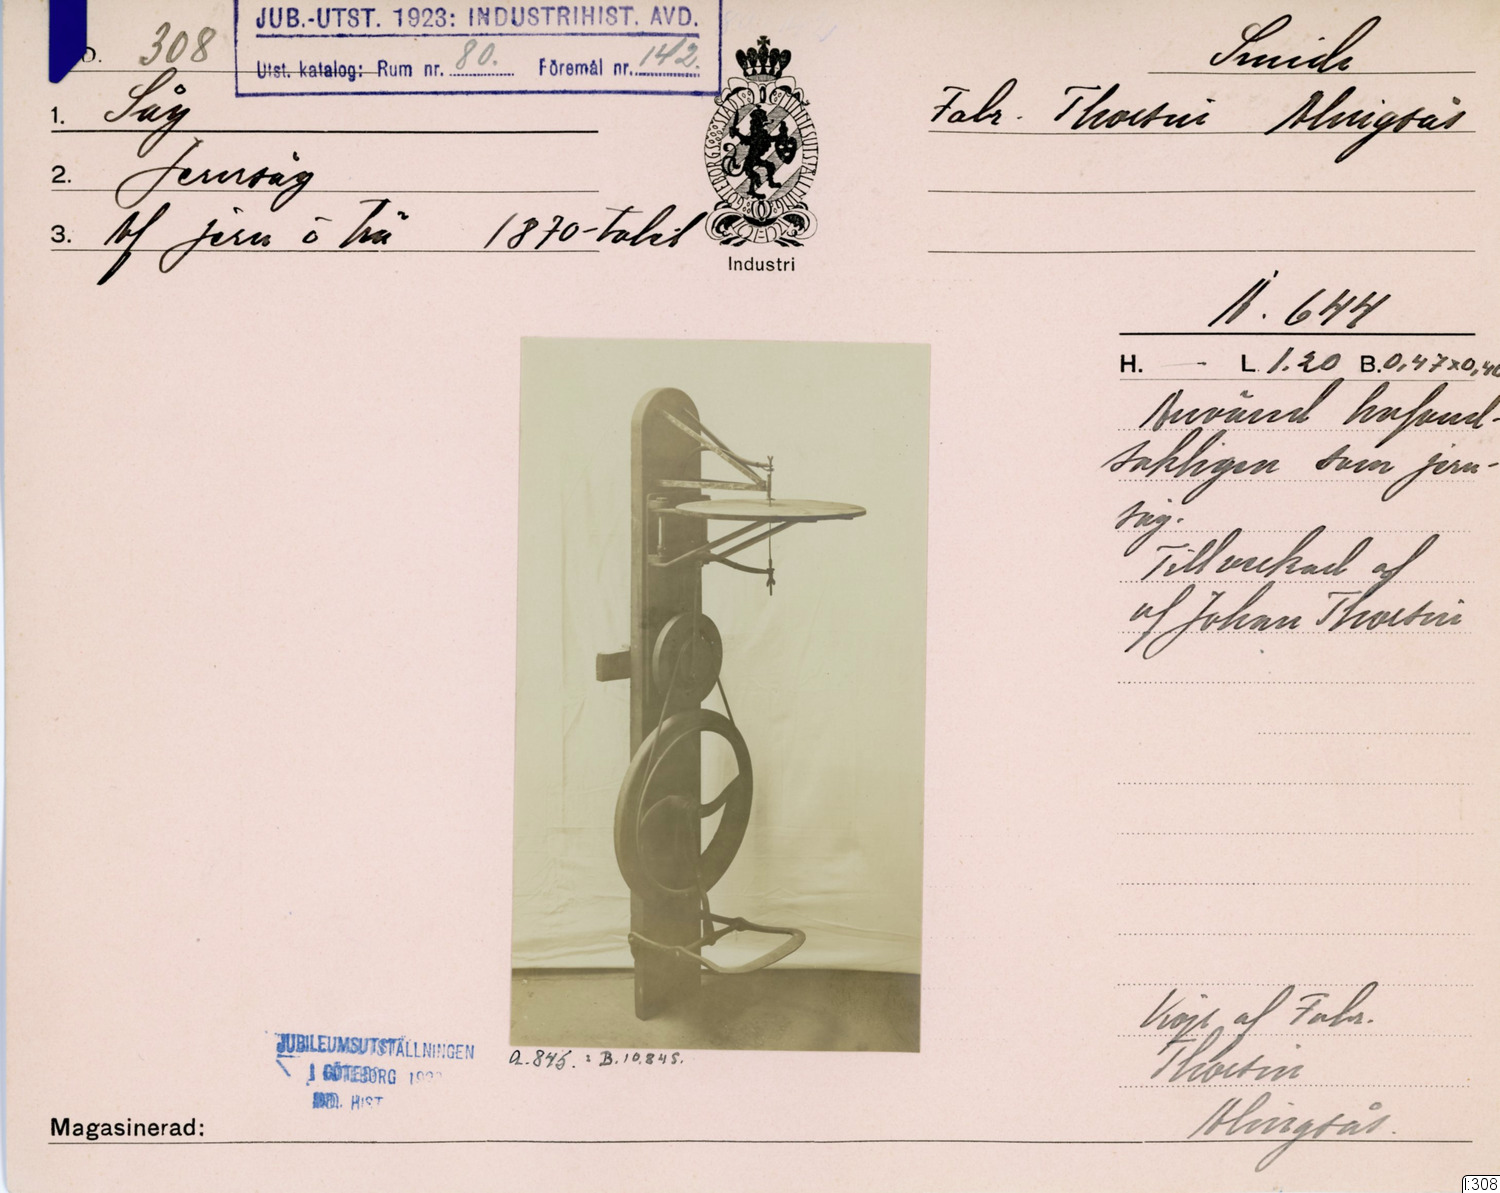 JUB.-UTST. 1923: INDUSTRIHIST. AVD.
Utst. katalog: Rum nr. 80. Föremål nr. 142.
D. 308
Smide
1. Såg
Fabr. Thorsin Alingsås
2. Jernsåg
3. Af jern o trä 1870-talet
GÖTEBORGS STADS JUBILEUMSUTSTÄLLNING
Industri
A. 644
H. - L. 1.20 B. 0,47x0,40
Använd hufvud-
sakligen som jern-
såg.
Tillverkad af
af Johan Thorsin
Köpt af Fabr.
Thorsin
Alingsås.
A.845. : B.10.845.
JUBILEUMSUTSTÄLLNINGEN
I GÖTEBORG 1923
IND. HIST
Magasinerad:
I:308